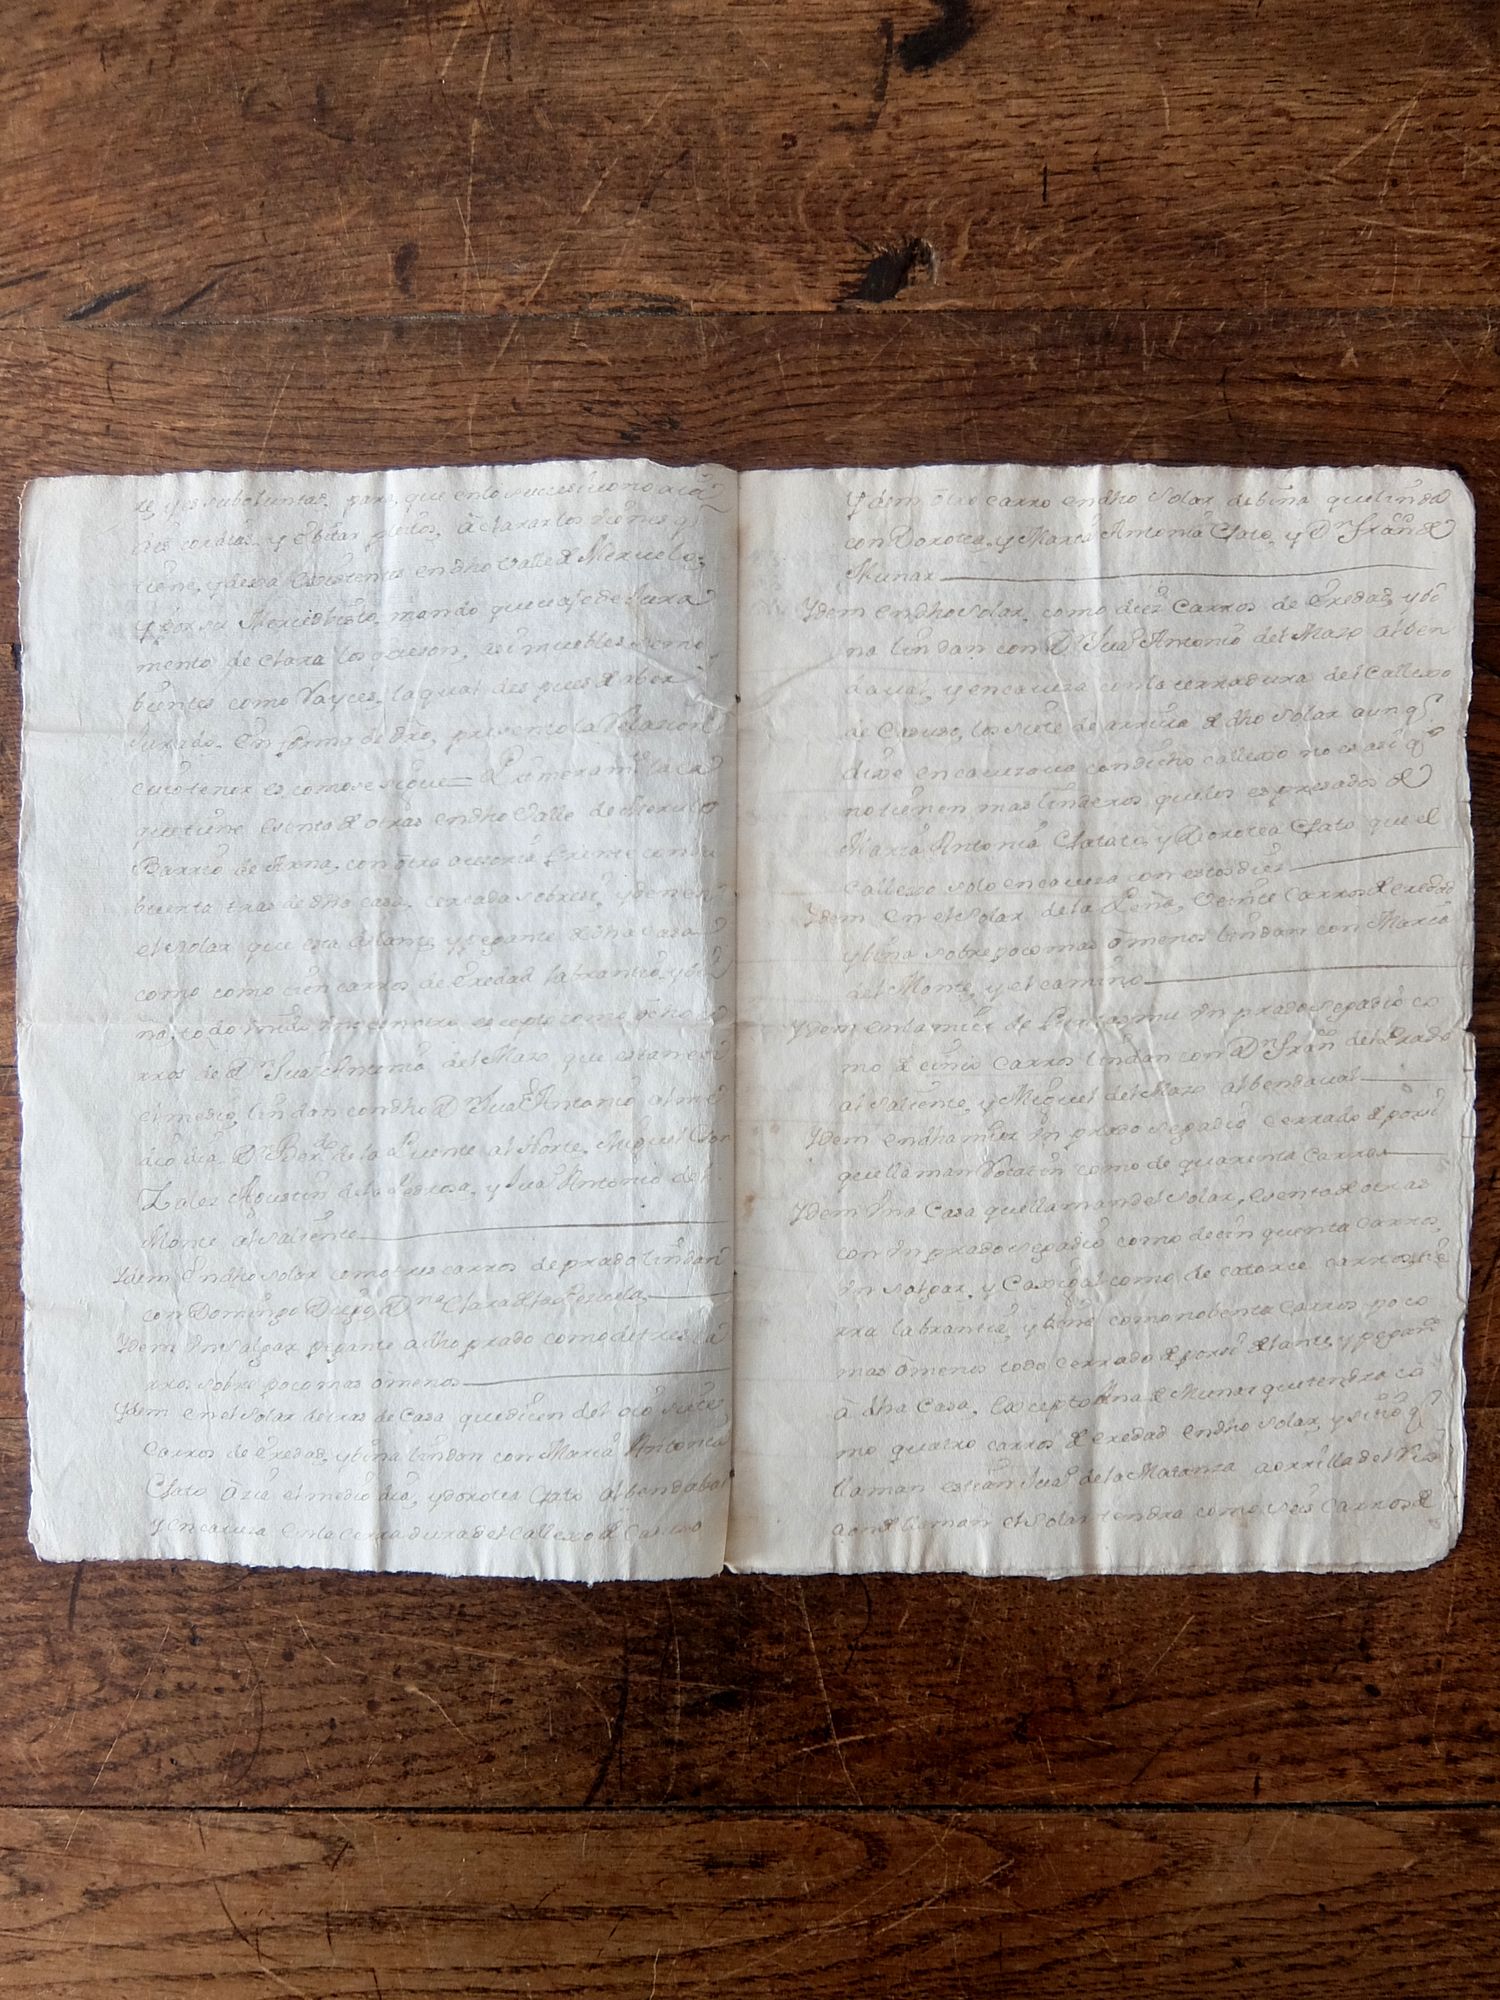 re, y es su boluntad, para, que en lo succesiuo no aia
discordias, y ebitar pleitos, âclarar los vienes q̃
tiene, y desea existentes en dho Valle de Meruelo,
y por su Merced bisto, mando que vajo de Jura
mento de clara los que son, asi muebles semo
bientes como Rayces, la qual des pues de aber
Jurado. en forma de dro, presento la Relazion
cuio tenor es como se sigue = Primeramte la ca
que tiene esenta de otras en dho Valle de Meruelo
Barrio de Arna, con otra acesoria frente con su
huerta tras de dha casa, cercada sobre si, y den en
el solar que esta delante, y pegante de dha casa
como como cien carros de eredad labrantio, y bi
na, todo vnido vno con otro, escepto como ocho ca
rros de Dn Juan Antonio del Mazo que estan en
el medio, lindan con dho Dn Juan Antonio al me
dio dia, Dn Berdo de la Puente al Norte, Miguel Gon
zalez Agustin de la Pedrosa, y Juan Antonio del
Monte al saliente
Ydem en dho solar como tres carros de prado lindan
con Domingo Diego, Dna Clara de la
Ydem vn salgar pegante a dho prado como de tres ca
rros, sobre poco mas ô menos
Ydem en el solar detras de Casa que dicen del siete
carros de eredad, y bina lindan con Maria Antonia
Chato âzia el medio dia, y dorotea Chato al bendabal
y en caueza en la cerradura del callexo de Casuso
Ydem ôtro carro en dho solar de bina que linda
con Dorotea, y Maria Antonia Chato, y Dn Franco de
Munar
Ydem en dho solar, como diez carros de eredad, y bi
na lindan con Dn Juan Antonio del Mazo al ben
daual, y en caueza con la cerradura del callexo
de Casuso, los siete de arriua de dho solar aunq̃
dixe en caueza con dicho callexo no es asi q̃
no tienen mas linderos que los espresados de
Maria Antonia Chato, y Dorotea Chato que el
callexo solo en caueza con estos diez
Ydem en el solar de la Peña, veinte carros de eredad
y bina sobre poco mas ô menos lindan con Maria
del Monte, y el camino
Ydem en la mier de vn prado segadio co
mo de cinco carros lindan con Dn Fran del Prado
al saliente, y Miguel del Mazo al bendaual
Ydem en dha mier vn prado segadio cerrado de por si
que llaman como de quarenta carros
Ydem vna casa que llaman del solar, esenta de otras
con vn prado segadio como de cinquenta carros,
vn salgar, y Casigal como de catorce carros, tie
rra labrantia, y bina como nobenta carros poco
mas ô menos todo cerrado de por si delante, y pegante
â dha casa, escepto Ana de Munar que tendra co
mo quatro carros de eredad en dho solar, y sitio q̃
llaman Juan de la Matanza a orrilla del Rio
a onde llaman el solar tendra como seis carros de